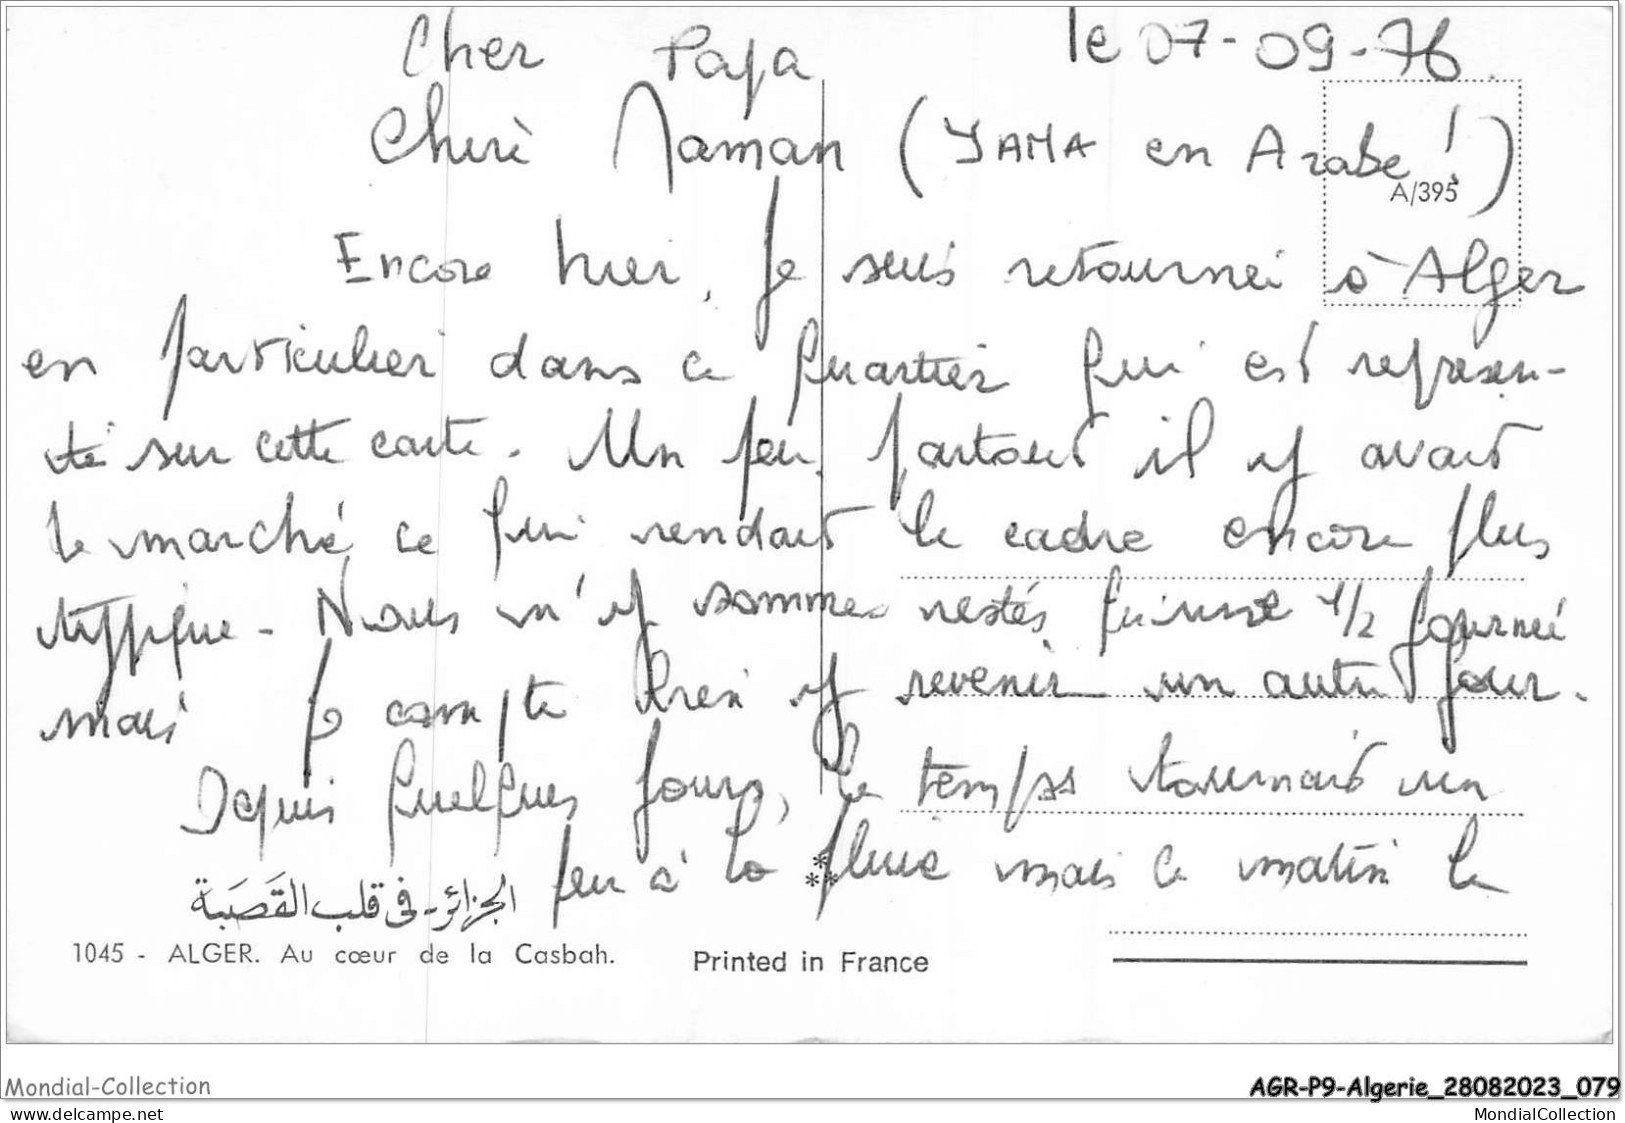 le 07-09-76.
Cher Papa
Cherè Maman (YAMA en Arabe !)
A/395
Encore hier, je suis retournéi à Alger
en particulier dans ce quartier qui est représen-
té sur cette carte. Un peu partout il y avait
le marché ce qui rendait le cadre encore plus
typique - Nous n'y sommes restés qu'une 1/2 journéé
mais je compte bien y revenir un autre jour.
Depuis quelques jours, le temps tournait un
peu à la pluie mais ce matin le
الجزائر - في قلب القَصَبَة
1045 - ALGER. Au cœur de la Casbah.
Printed in France
Mondial-Collection
AGR-P9-Algerie_28082023_079
www.delcampe.net
MondialCollection